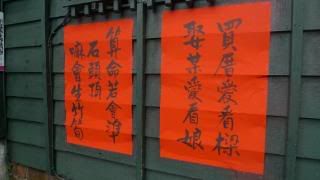 買厝愛看樑
娶某愛看娘
算命若會準
石頭頂
嘛會生竹筍